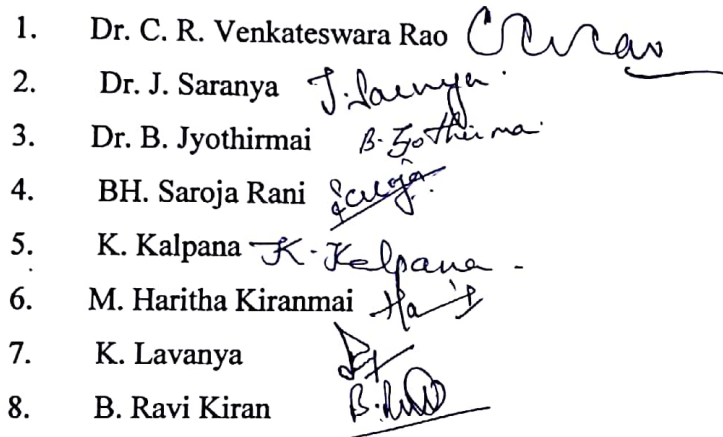 1. Dr. C. R. Venkateswara Rao CRVRao
2. Dr. J. Saranya J. Saranya
3. Dr. B. Jyothirmai B. Jyothirmai
4. BH. Saroja Rani Saroja
5. K. Kalpana K. Kalpana
6. M. Haritha Kiranmai
7. K. Lavanya
8. B. Ravi Kiran